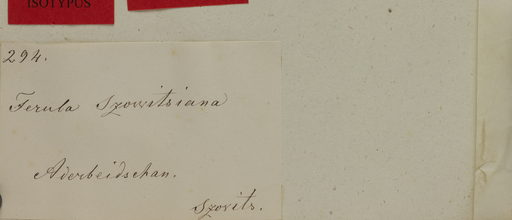 ISOTYPUS
294.
Ferula Szowitsiana
Aderbeidschan.
Szovits.